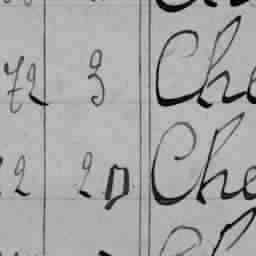 72 3 Che
22 20 Che